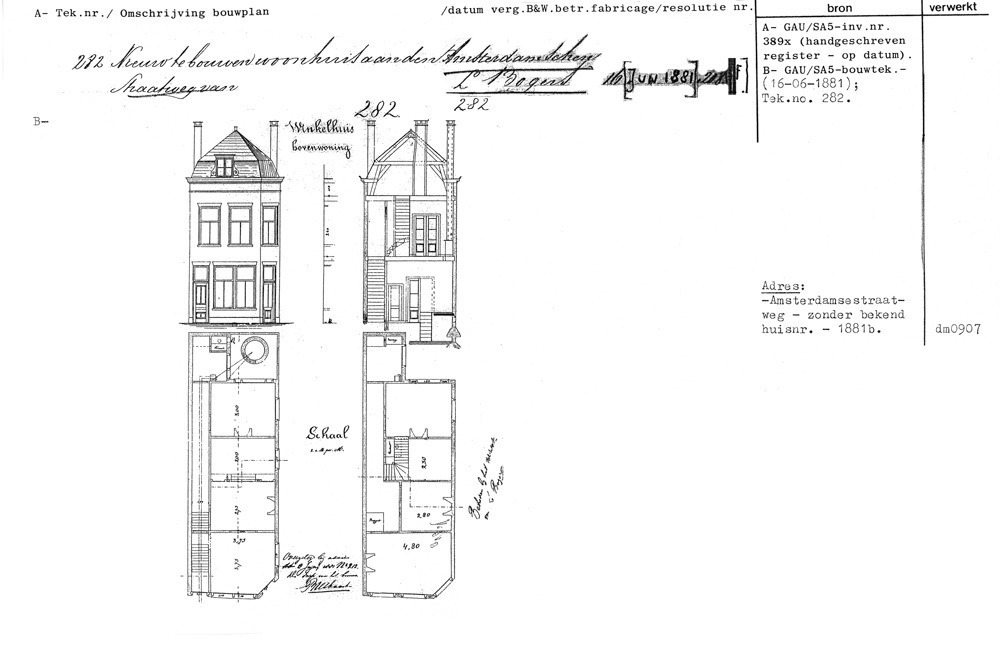 A- Tek.nr./ Omschrijving bouwplan
/datum verg.B&W.betr.fabricage/resolutie nr.
bron
verwerkt
282 Nieuw te bouwen woonhuis aan den Amsterdamschen
Straatweg van
L Bogers
16 [JUN 1881]
282.
282
A- GAU/SA5-inv.nr.
389x (handgeschreven
register - op datum).
B- GAU/SA5-bouwtek.-
(16-06-1881);
Tek.no. 282.
B-
Winkelhuis
bovenwoning
Adres:
-Amsterdamsestraat-
weg - zonder bekend
huisnr. - 1881b.
dm0907
3,00
Schaal
2,50
2,80
4,80
3,75
3,75
Behoort bij het adres